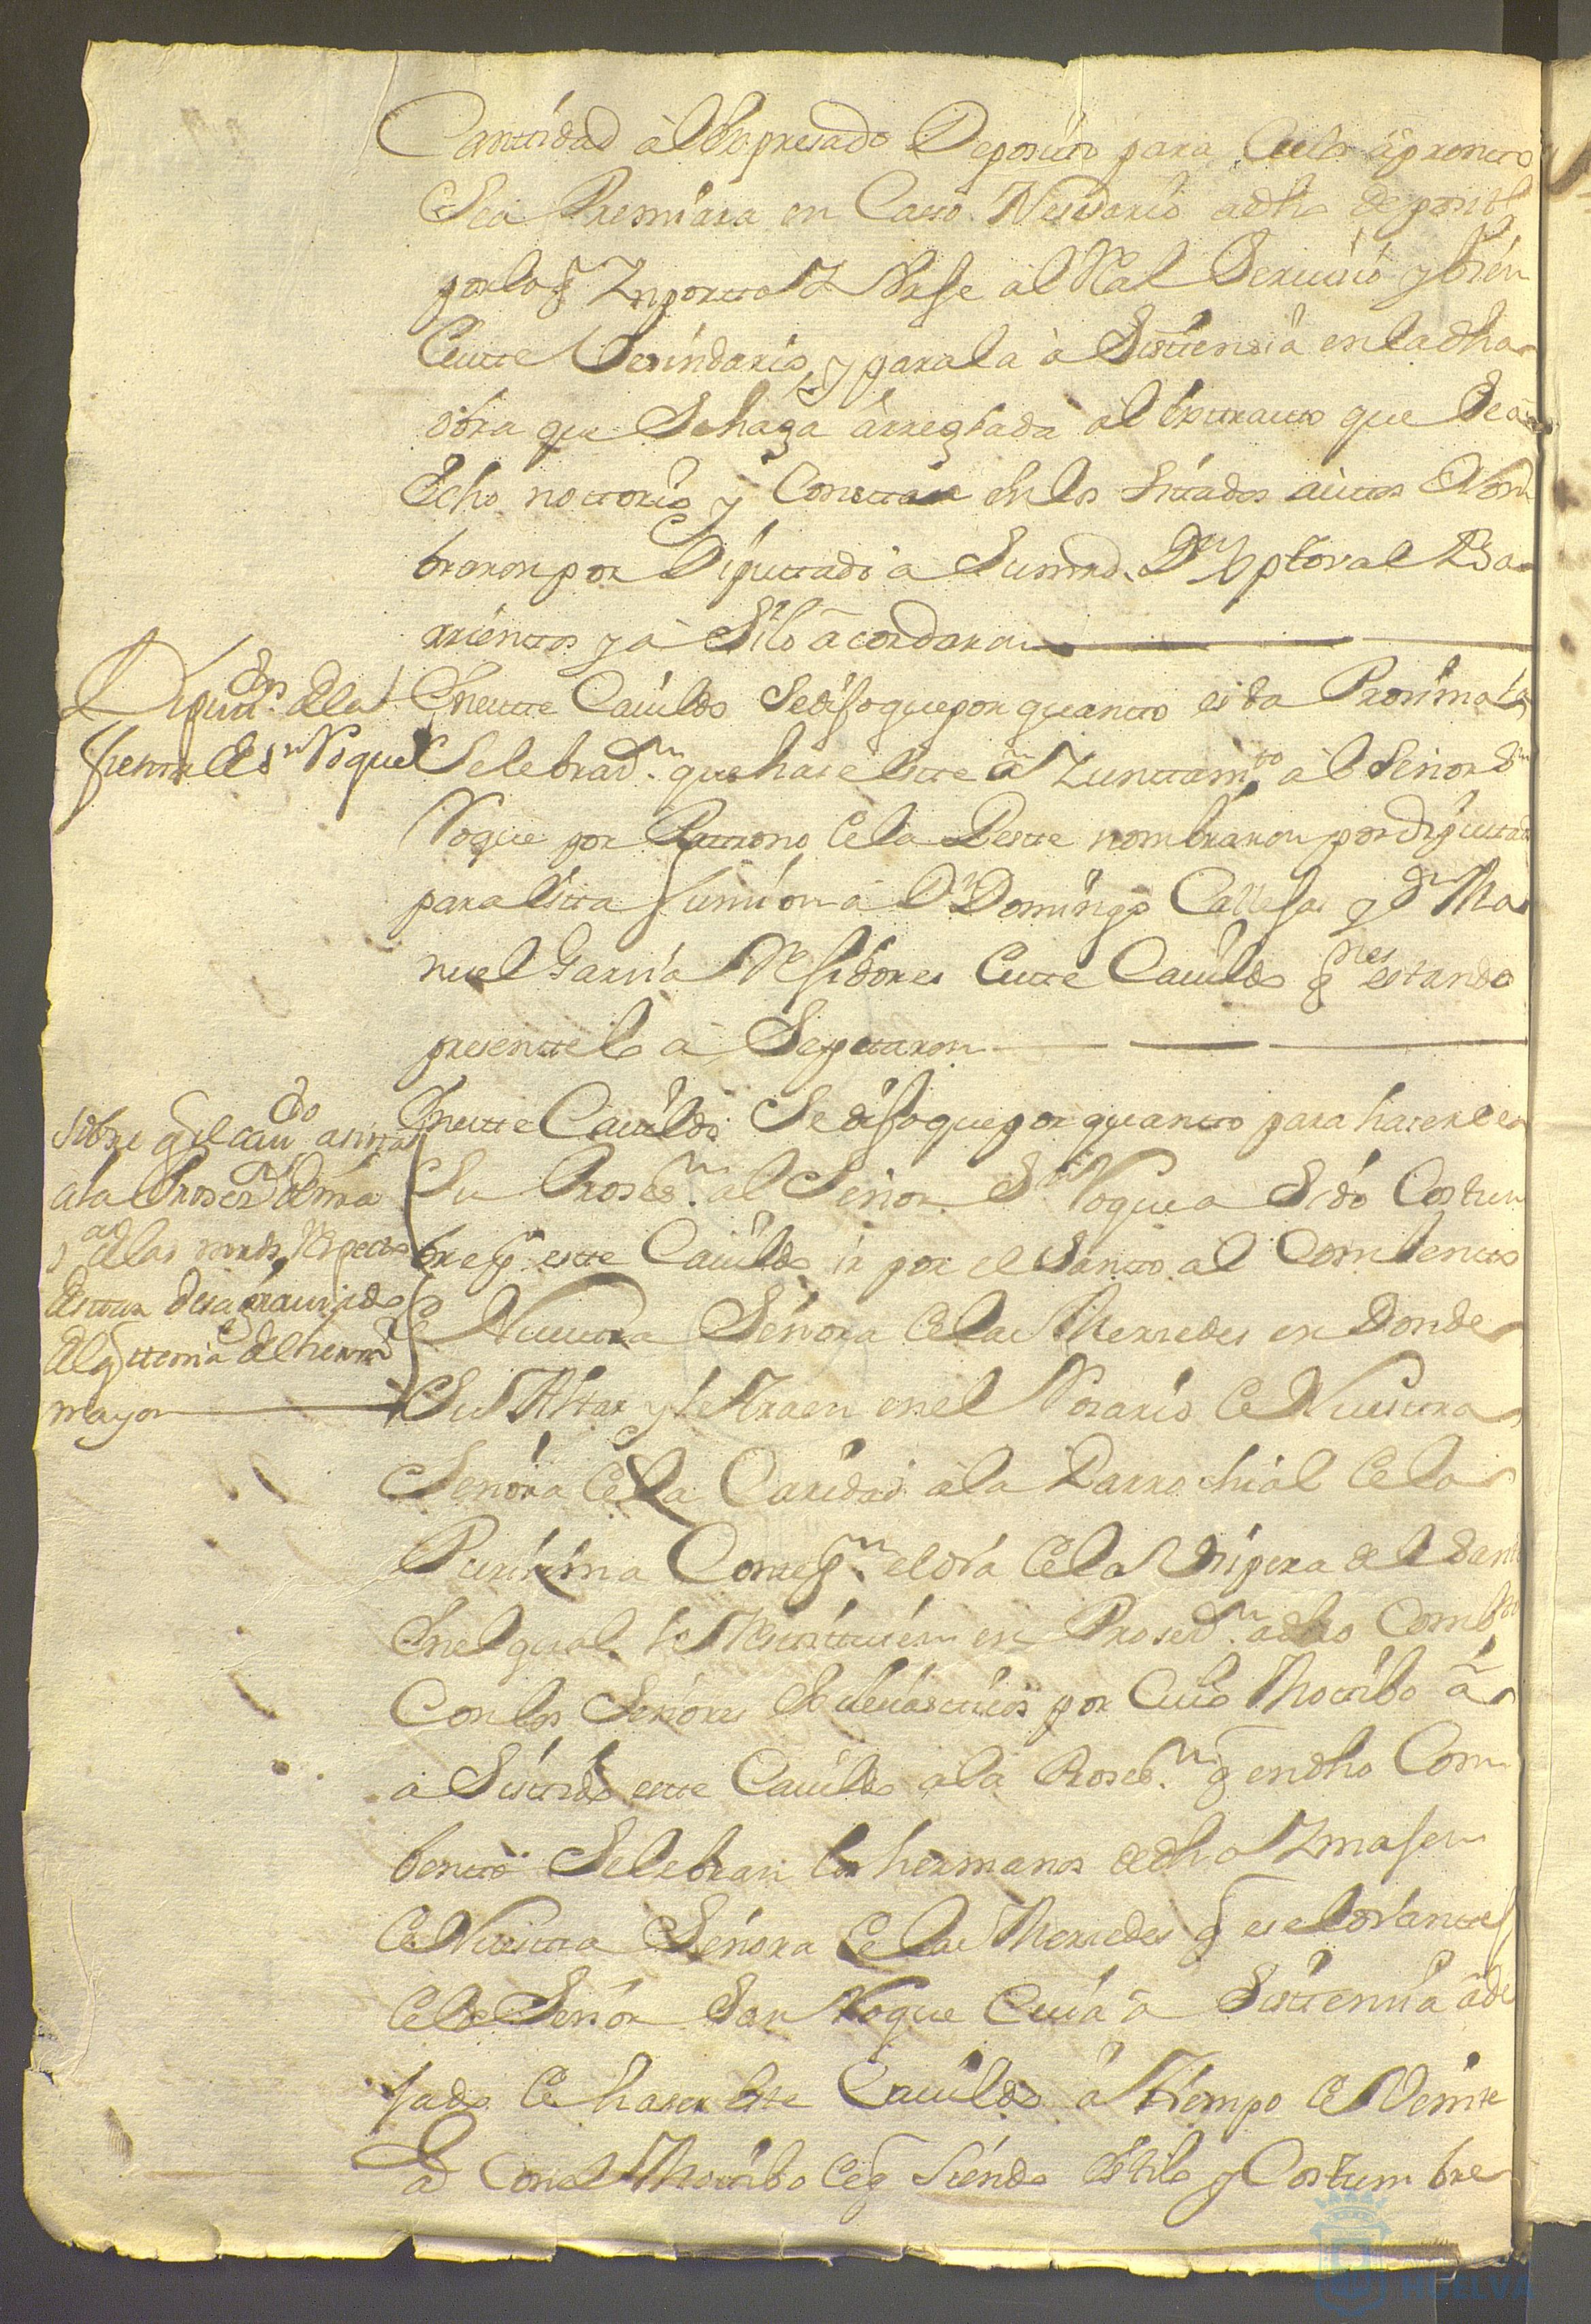 Cantidad àl Expresado Deposito para Cuio àpronto
Sea Premiara en Caso Nesesario adho deposit
por lo q Ynporta Y Vrse al Rl Seruisio y bien
Ceste Vesindario, y para la à Sistensia en la dha
obra que Se haga àrreglada al Extracto que Se à
Echo nottorio y Consta en los Sitados autos Nom
braron por Diputtado a Sumrd. Dn Xptoval Ba
rrienttos y à Si lo àcordaron
Diputdos de la
fiesta de Sn Roque
Eneste Cauildo Se dijo que por quanto esta Prosima la
Selebrasn. que hase Este àYunttamto. àl Señor Sn
Roque por Patrono Cela Peste nombraron por diputad
para Esta funsion à Dn Domingo Callejas y Dn Ma
nuel Garsia Rejidores Ceste Cauildo qnes estando
presente lo à Septaron
Sobre q el caudo asista
a la Prosesn de nra
sa de las mrds, Respecto
destar desagrauiado
del q tenia del hermo
mayor
Eneste Cauildo Se dijo que por quanto para haser
Su Prosesn. al Señor Sn Roque a Sido Costun
bre q este Cauildo ir por el Santo al Combento
Ce Nuestra Señora Celas Mersedes en Donde
Su Altar y le traen en el Rosario Ce Nuestra
Señora Cela Caridad à la Parrochial Cela
Purisima Consepsn. el dia Cela Vispera del Sant
Enel qual le Restituien en Prosesn. adho Combto
Con los Señores Eclesiasticos por Cuio Motibo à
a Sistido este Cauildo a la Prosesn. q en dho Com
bento Selebran los hermanos de dha Ymajen
Ce Nuestra Señora Celas Mersedes q es el dia antes
Cel Señor San Roque Cuia à Sistensia à de
jado Ce haser Este Cauildo à Tiempo Ce Veinte
as Con el Motibo Ceq Siendo Estilo y Costumbre